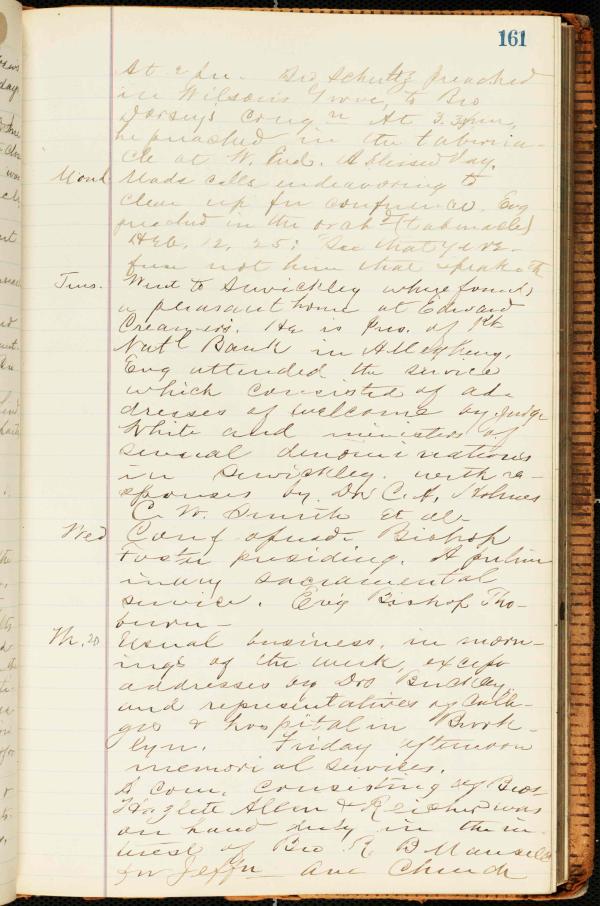 161
At 2 p.m. Bro Schultz preached
in Wilson's Grove, to Bro
Dorsey's Congn At 3.30 p.m.
he preached in the taberna-
cle at W. End. A blessed day.
Mond. Made calls endeavoring to
clear up for conference. Evg
preached in the orchd (tabernacle)
Heb. 12, 25: See that ye re-
fuse not him that speaketh
Tues. Went to Sewickley where found
a pleasant home at Edward
Creamers. He is Pres. of
Natl Bank in Allegheny.
Evg attended the service
which consisted of ad-
dresses of welcome by Judge
White and ministers of
several denominations
in Sewickley. with re-
sponses by Dr C. A. Holmes
C. W. Smith et al-
Wed Conf opened Bishop
Foster presiding. A prelim
inary sacramental
service. Ev'g Bishop Tho-
burn-
Th. 20 Usual business, in morn-
ings of the week, except
addresses by Drs Buckley,
and representatives of Colle-
ges & hospital in Brook-
lyn. Friday afternoon
memorial services.
A com, consisting of Bros
Hazlett Allen & Reisher was
on hand duly in the in-
terest of Bro R B Mansell
for Jeffn Ave Church